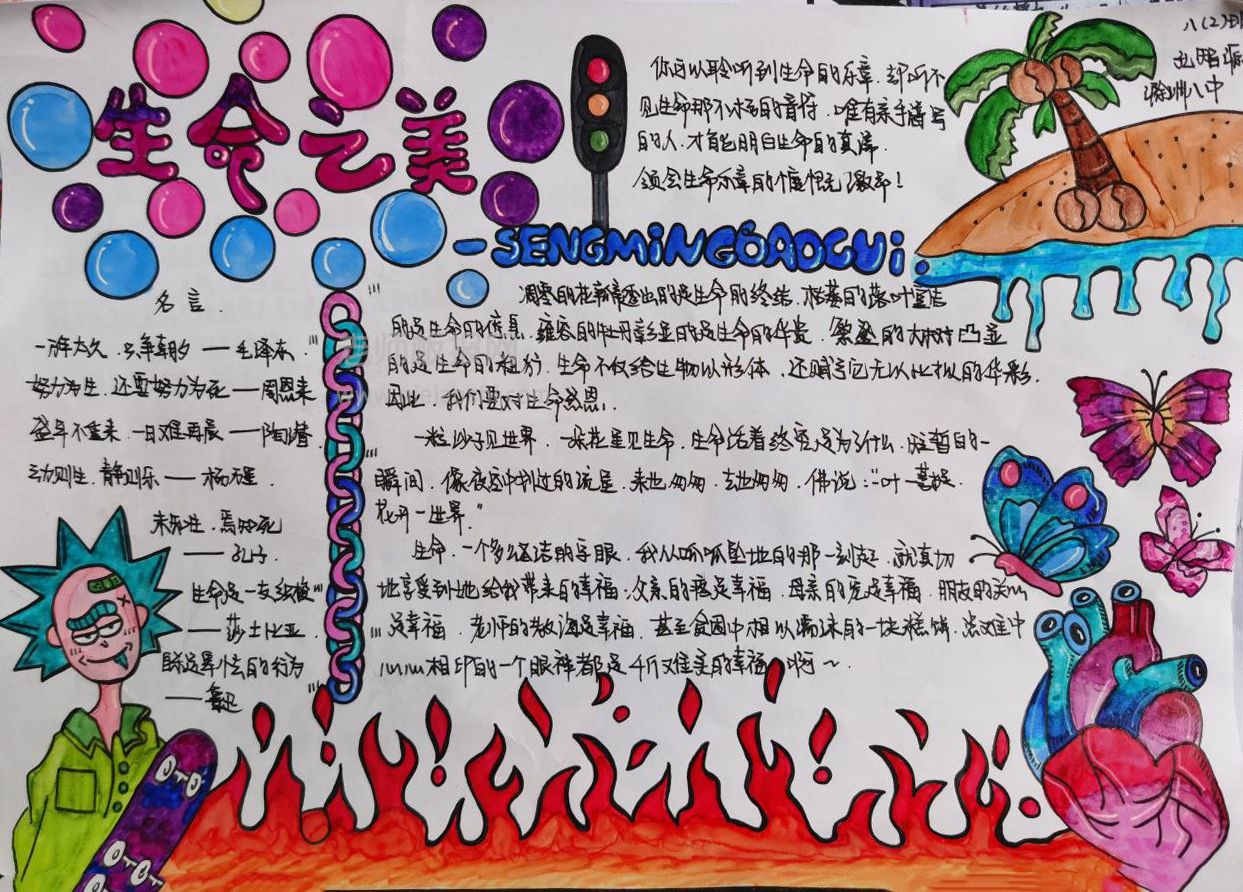 生命之美
你可以聆听到生命的乐章,却听不
见生命那不朽的音符,唯有亲手谱写
的人,才能明白生命的真谛.
领会生命乐章的
八(2)班
滁州八中
-SENGMiNGBAOGUi.
名言.
万年太久,只争朝夕——毛泽东.
努力为生,还要努力为死——周恩来
盛年不重来,一日难再晨——陶潜.
动则生,静则乐——
未知生,焉知死
——孔子.
生命是一支
——莎士比亚.
的行为
——鲁迅
的是生命的终结,枯萎的落叶宣告
的是生命的 雍容的牡丹彰显的是生命的华贵,繁盛的大树凸显
的是生命的粗犷.生命不仅给生物以形体,还赋予它无以比拟的华彩.
因此,我们要对生命感恩!
一粒沙子见世界,一朵花里见生命,生命活着终究是为了什么,短暂的一
瞬间,像夜空中划过的流星,来也匆匆,去也匆匆,佛说:“一叶一菩提.
花开一世界.”
生命,一个多么 的字眼.我从呱呱坠地的那一刻起,就真切
地享受到 给我带来的幸福:父亲的 是幸福,母亲的 是幸福,朋友的关心
是幸福,老师的教诲是幸福,甚至贫困中相以 的一块糕饼,患难中
心心相印的一个眼神都是 的幸福 啊~.